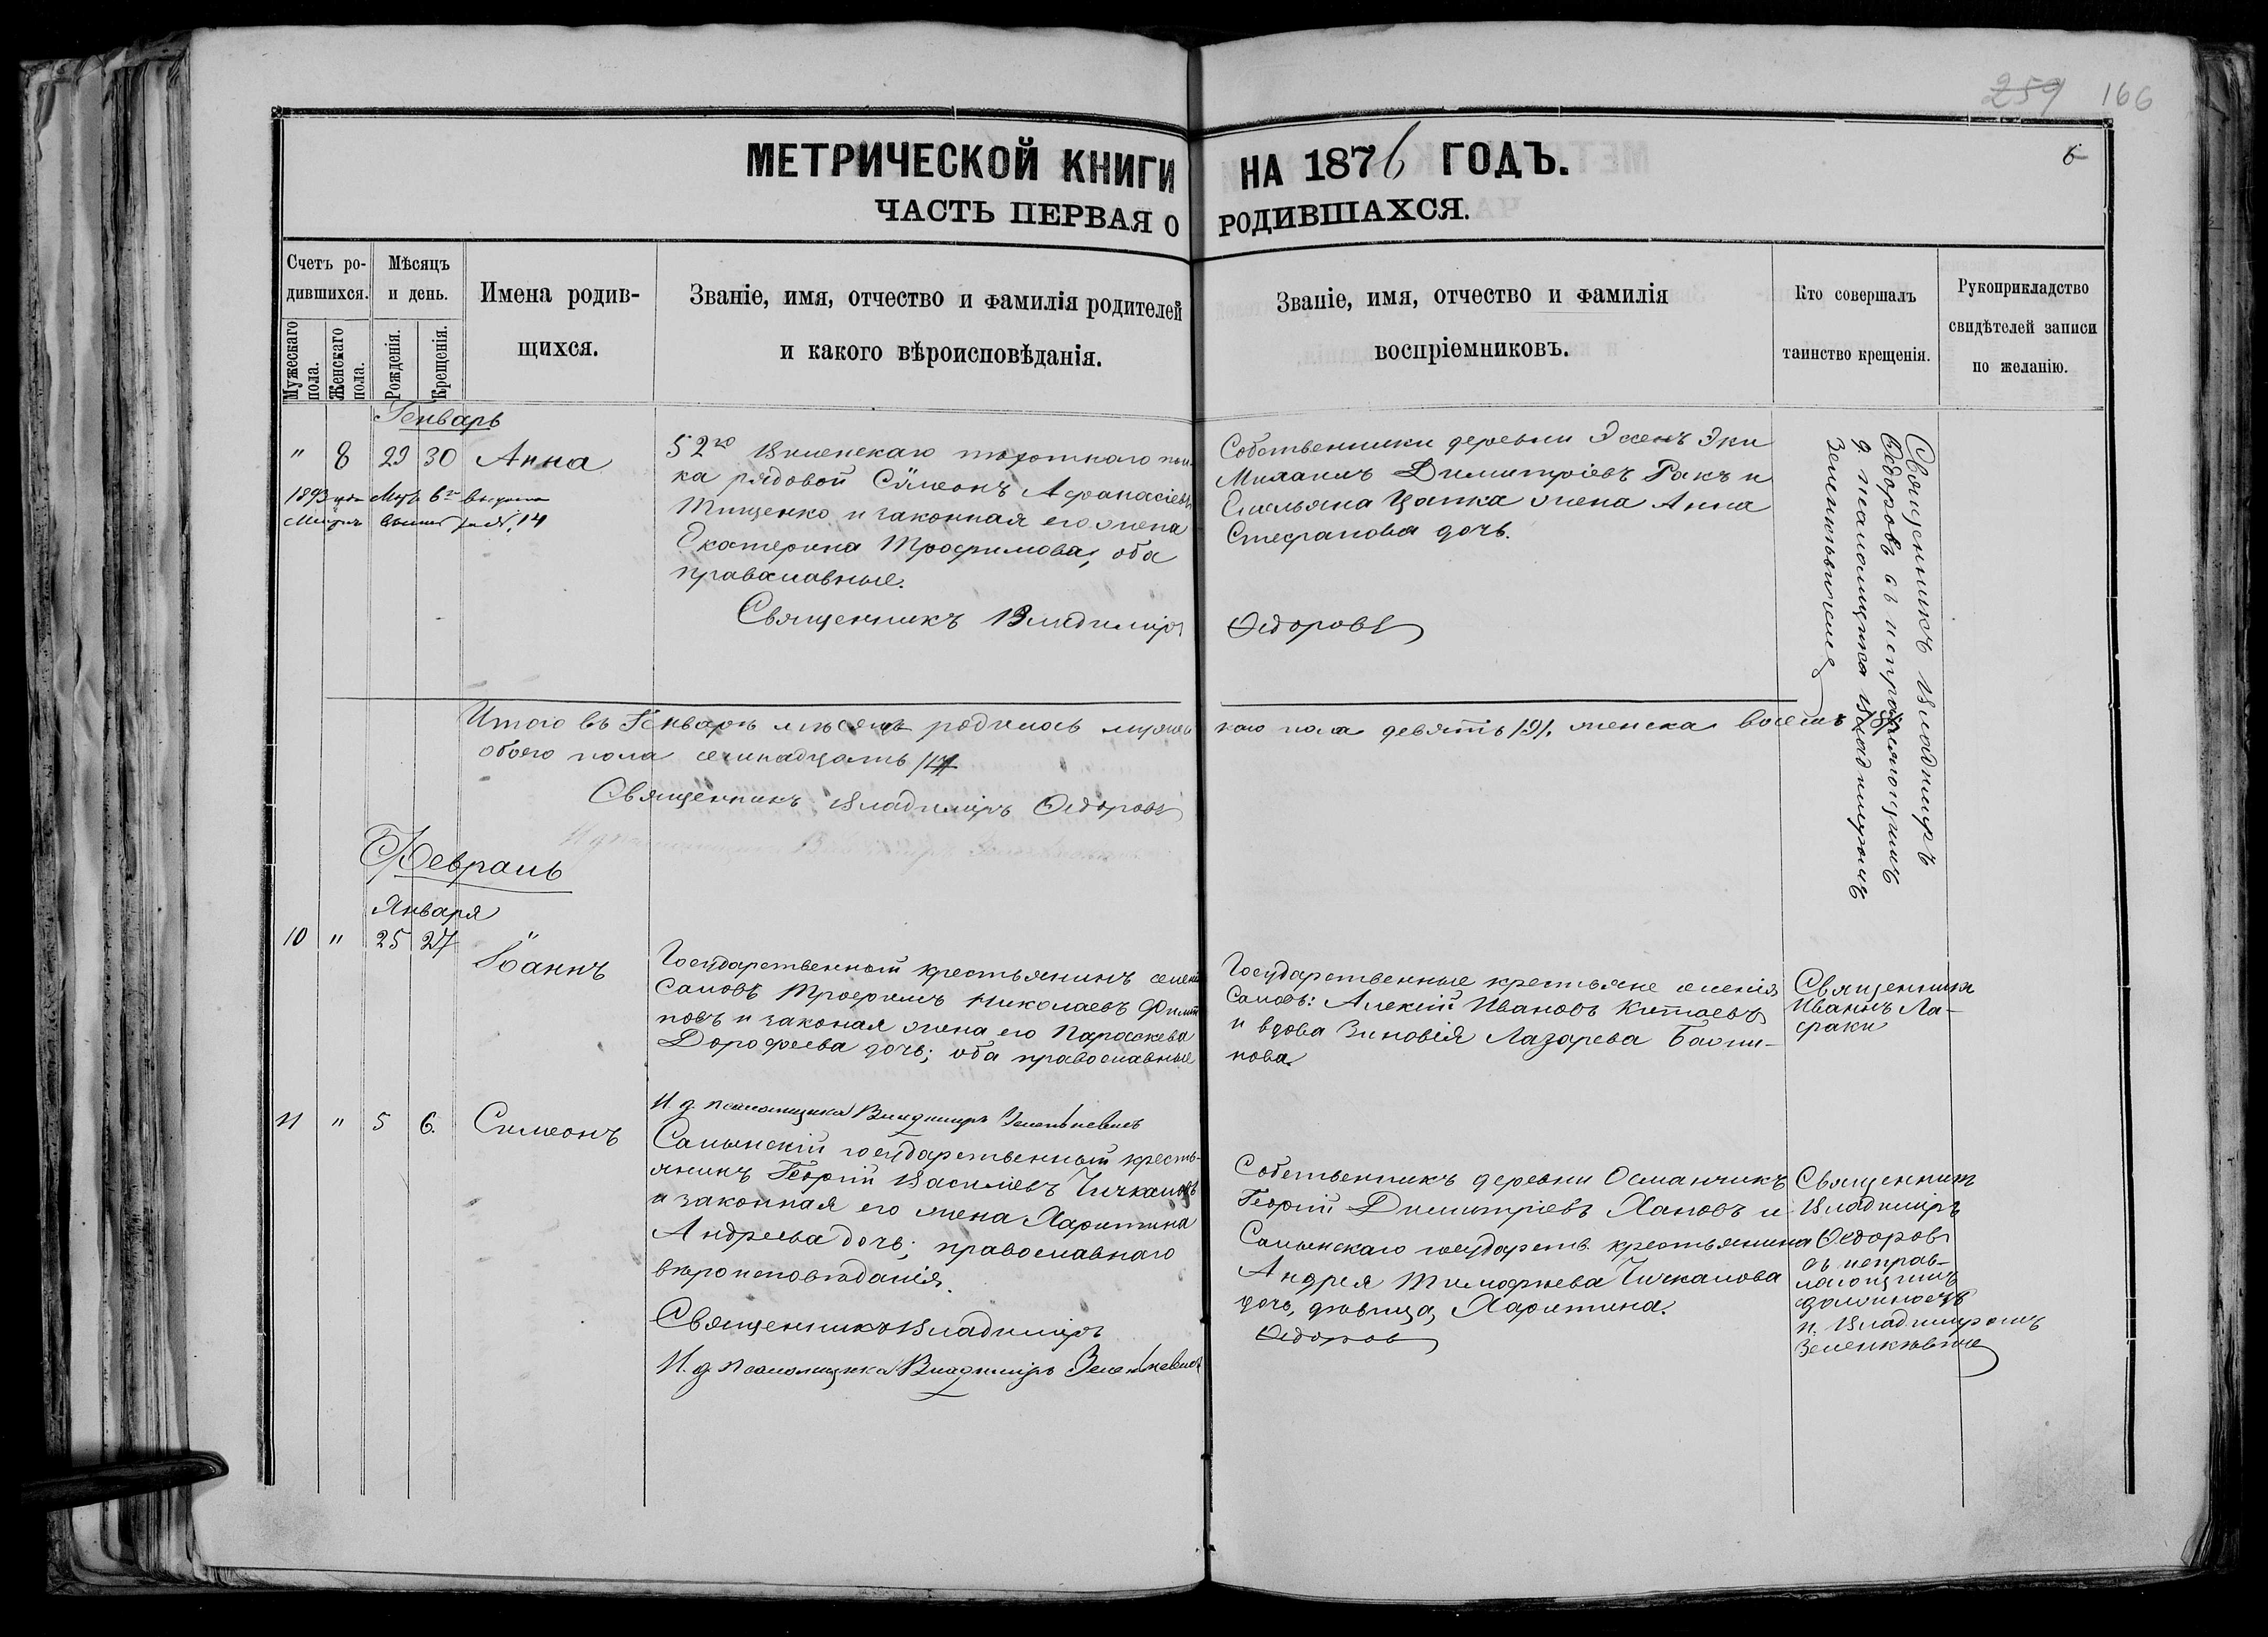 259 166
МЕТРИЧЕСКОЙ КНИГИ НА 1876 ГОДЪ.
6
ЧАСТЬ ПЕРВАЯ О РОДИВШАХСЯ.
Счетъ родившихся.
Мужескаго пола.
Женскаго пола.
Мѣсяцъ и день.
Рожденія.
Крещенія.
Имена родив-
щихся.
Званіе, имя, отчество и фамилія родителей
и какого вѣроисповѣданія.
Званіе, имя, отчество и фамилія
воспріемниковъ.
Кто совершалъ
таинство крещенія.
Рукоприкладство
свидѣтелей записи
по желанію.
Генварь
" 8 29 30 Анна
1893 года 6го выдана
№ 14
52го Виленскаго пѣхотнаго пол-
ка рядовой Сѵмеонъ Афанасіевъ
Тищенко и законная его жена
Екатерина Трофимова, оба
православные.
Священникъ Владиміръ
Собственники деревни Эки
Михаилъ Димитріевъ Ракъ и
Емельяна Цапка жена Анна
Стефанова дочь.
Ѳедоровъ
Священникъ Владиміръ
Ѳедоровъ съ исправляющимъ
д. псаломщика Владиміромъ
Итого въ Генварѣ мѣсяцѣ родилось мужес
каго пола девять /9/. женска восемь /8/
обоего пола семнадцать /17/
Священникъ Владиміръ Ѳедоровъ
Февраль
Января
10 " 25 27 Іоаннъ
Государственный крестьянинъ селенія
Саловъ Трофимъ Николаевъ
повъ и законая жена его Параскева
Дорофеева дочь; оба православные
Государственные крестьяне селенія
Саловъ: Алексій Ивановъ Китаевъ
и вдова Зиновія Лазарева
нова.
Священникъ
Иванъ Ла-
факи
И. д. псаломщика Владиміръ
11 " 5 6. Симеонъ
Салынскій государственный кресть-
янинъ Георгій Василіевъ Чичкаловъ
и законная его жена Харитина
Андреева дочь; православнаго
вѣроисповѣданія.
Собственникъ деревни Османчикъ
Георгій Димитріевъ Хановъ и
Салынскаго государств. крестьянина
Андрея Тимофѣева Чичкалова
дочь, дѣвица, Харитина.
Священникъ
Владиміръ
Ѳедоровъ
съ исправ-
ляющимъ
должность
п. Владиміромъ
Священникъ Владиміръ
Ѳедоровъ
И. д. псаломщика Владиміръ